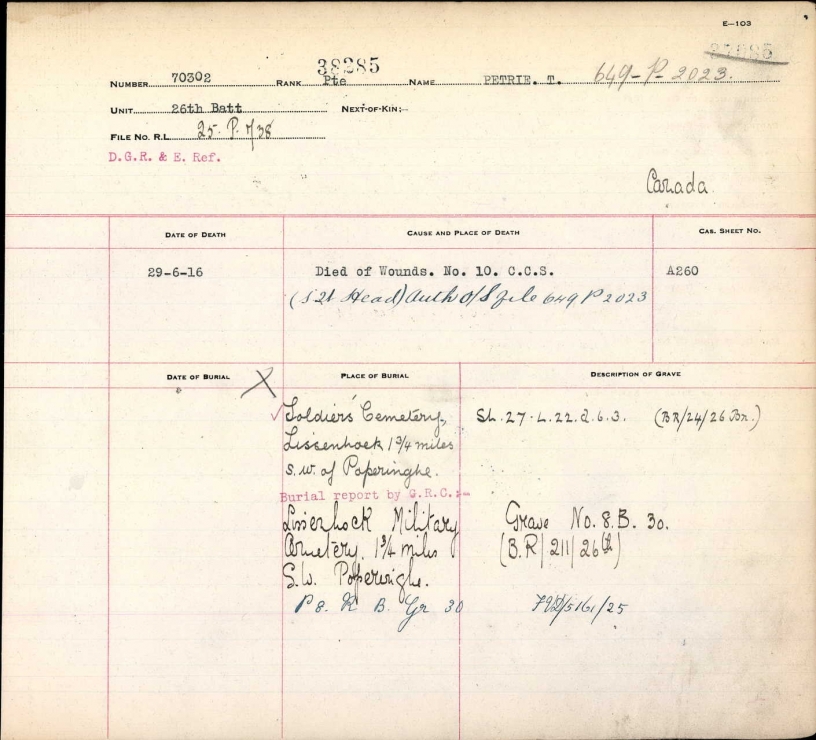 E—103
27085
38285
NUMBER 70302 RANK Pte NAME PETRIE. T. 649-P-2023.
UNIT 26th Batt NEXT-OF-KIN:—
FILE NO. R.L. 25. P. 7/38
D.G.R. & E. Ref.
Canada
DATE OF DEATH CAUSE AND PLACE OF DEATH CAS. SHEET NO.
29-6-16 Died of Wounds. No. 10. C.C.S. A260
Head) Auth file 649 P 2023
DATE OF BURIAL X PLACE OF BURIAL DESCRIPTION OF GRAVE
✓ Soldiers' Cemetery, Sh. 27. L. 22. d. 6. 3. (BR/24/26 Bn.)
Lissenhoek 1¾ miles
S.W. of Poperinghe.
Burial report by G.R.C.:—
Lissenhock Military Grave No. 8. B. 30.
Cemetery. 1¾ miles (B.R/211/26th)
S.W. Poperinghe.
P 8. R B. Gr 30 /5161/25